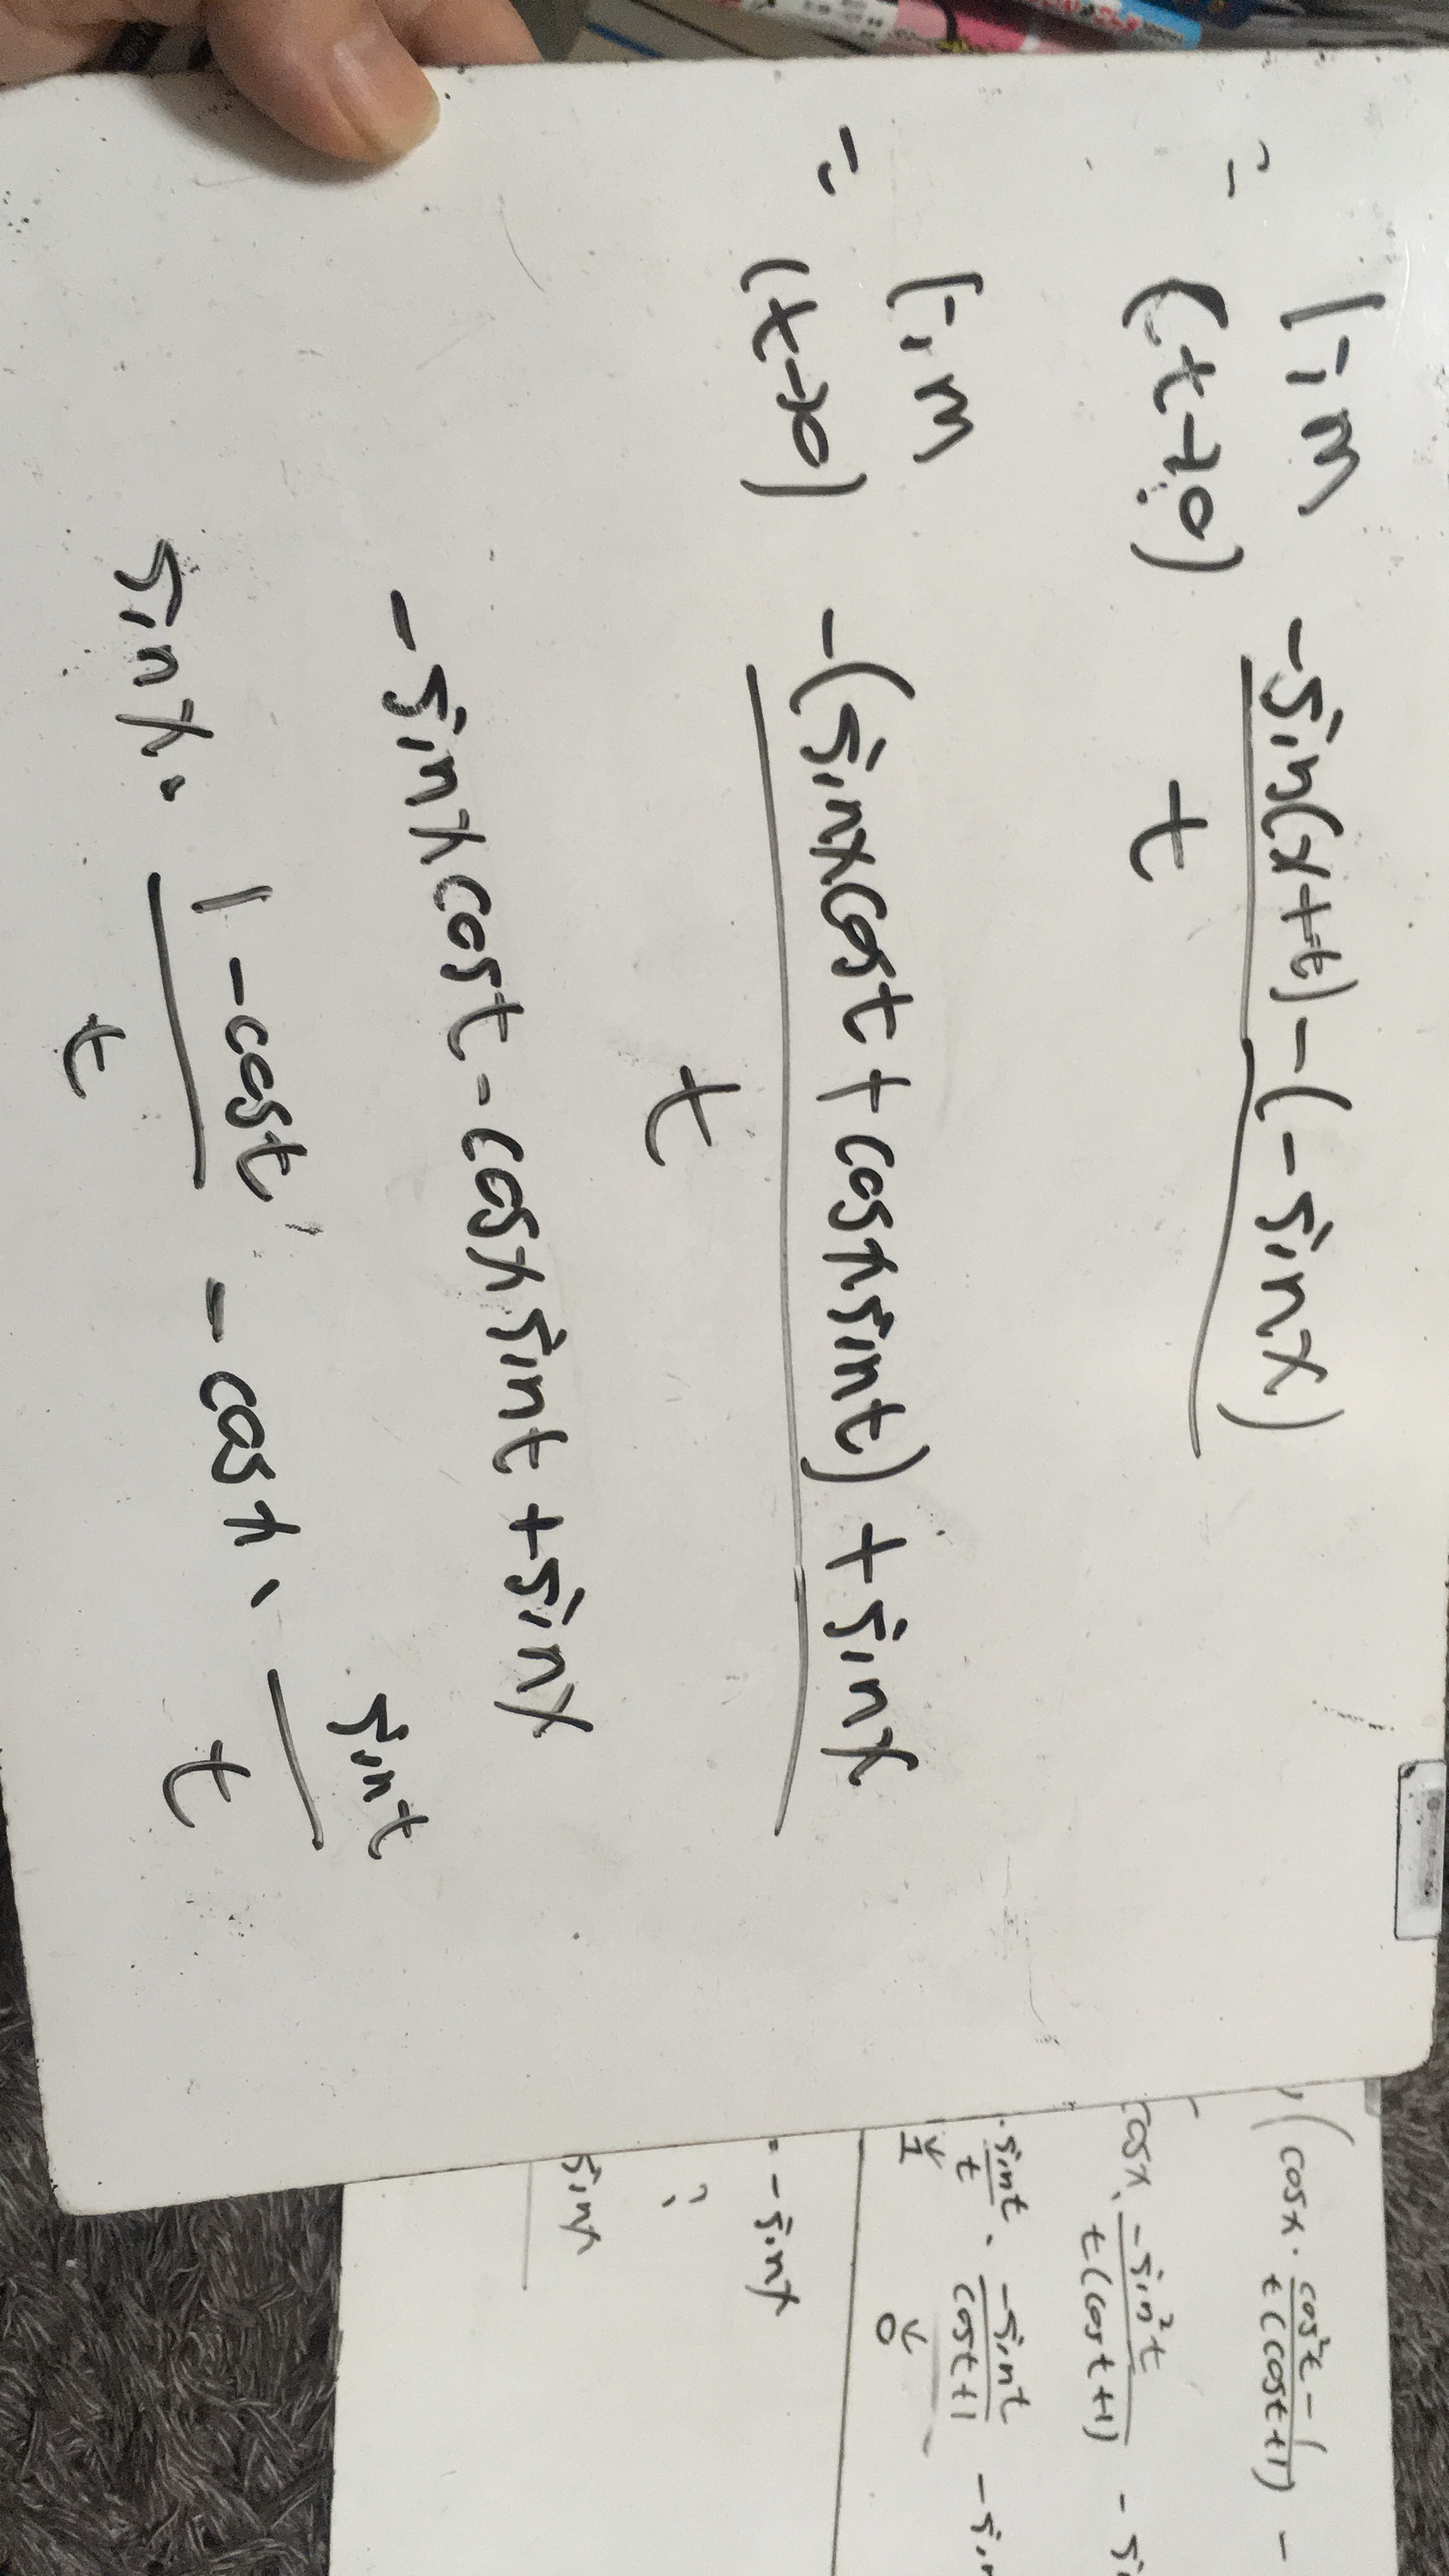 = lim -sin(x+t)-(-sinx)
(t→0) t
= lim -(sinxcost+cosxsint)+sinx
(t→0) t
-sinxcost-cosxsint+sinx
sinx· 1-cost - cosx· sint
t t
(cosx· cos²t-1 -
t(cost+1)
cosx· -sin²t
t(cost+1)
· sint · -sint
t cost+1
1 0
= -sinx
sinx